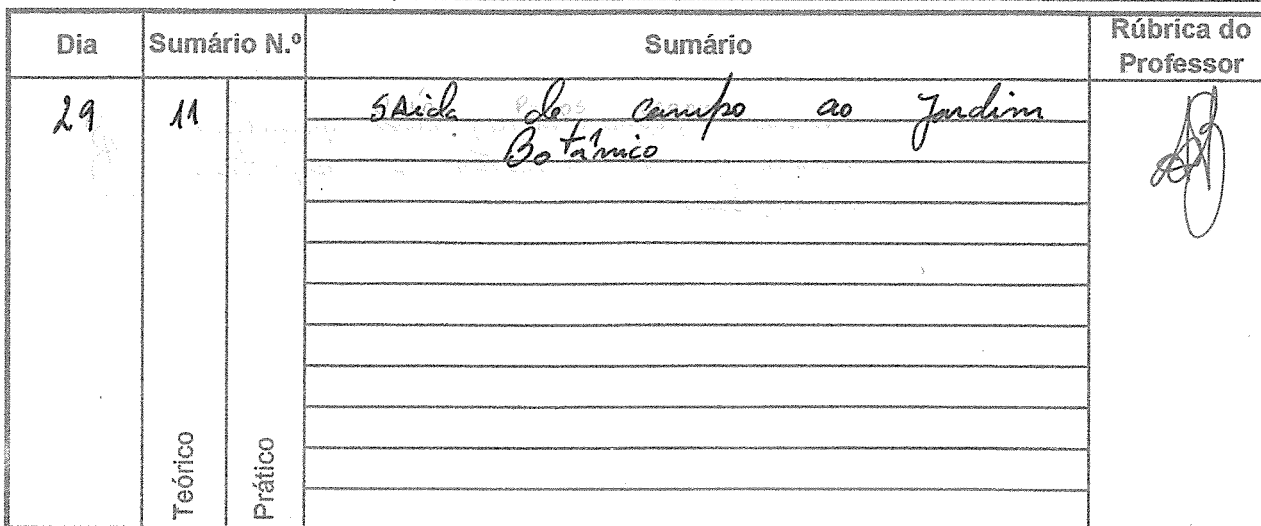 Dia Sumário N.º Sumário Rúbrica do Professor
29 11 Saida de campo ao Jardim
Botânico
Teórico Prático